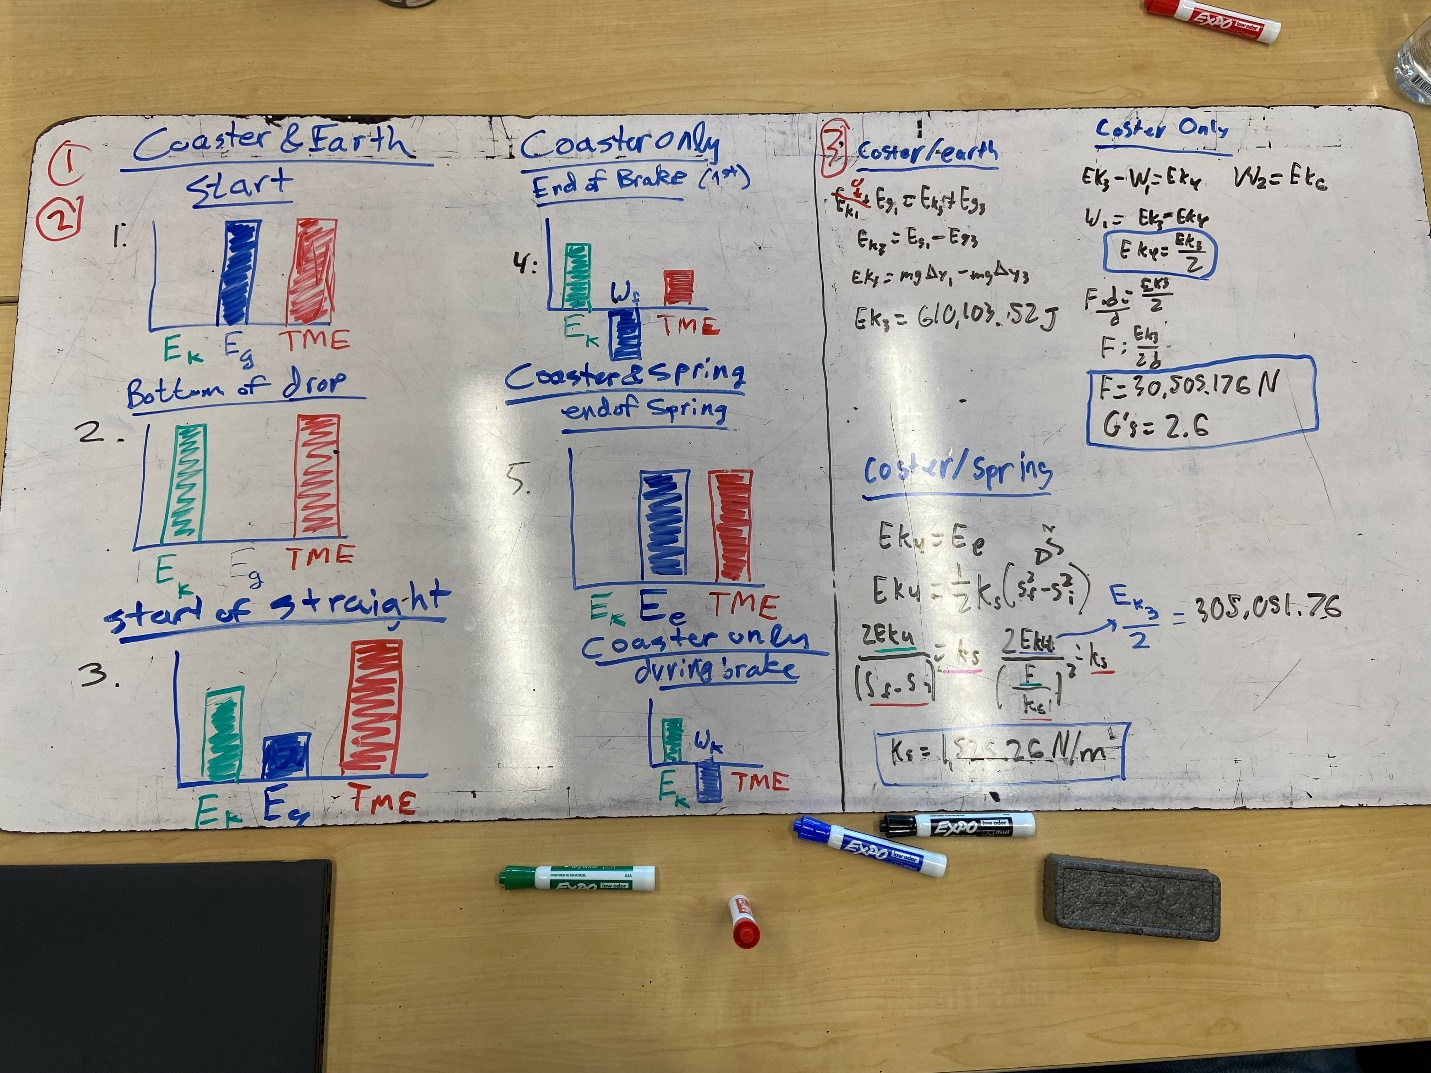 ①
②
Coaster & Earth
Start
1.
Ek Eg TME
Bottom of drop
2.
Ek Eg TME
start of straight
3.
Ek Eg TME
Coaster only
End of Brake (1st)
4:
Ek
TME
Coaster & spring
end of Spring
5.
Ek Ee TME
Coaster only
during brake
Ek TME
3.
Coster/earth
Ek1 + Eg1 = Ek3 + Eg3
Ek3 = Eg1 - Eg3
Ek3 = mgΔy1 - mgΔy3
Ek3 = 610,103.52J
Coster Only
Ek3 - W1 = Ek4 W2 = Ek6
W1 = Ek3 - Ek4
Ek4 = Ek3/2
F = Ek3/2d
F = 30,505.176 N
G's = 2.6
Coster/spring
Ek4 = Ee
Ek4 = 1/2 ks(sf² - si²)
2Ek4 = ks
Ek3/2 = 305,051.76
ks
EXPO low odor
EXPO low odor
EXPO low odor
EXPO low odor